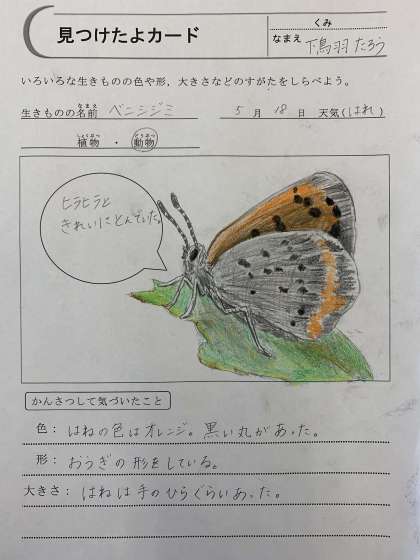 見つけたよカード
くみ
なまえ 下鳥羽たろう
いろいろな生きものの色や形，大きさなどのすがたをしらべよう。
生きものの名前 ベニシジミ 5月18日 天気(はれ)
植物 ・ 動物
ヒラヒラと
きれいにとんでいた。
かんさつして気づいたこと
色： はねの色はオレンジ。黒い丸があった。
形： おうぎの形をしている。
大きさ： はねは手のひらぐらいあった。